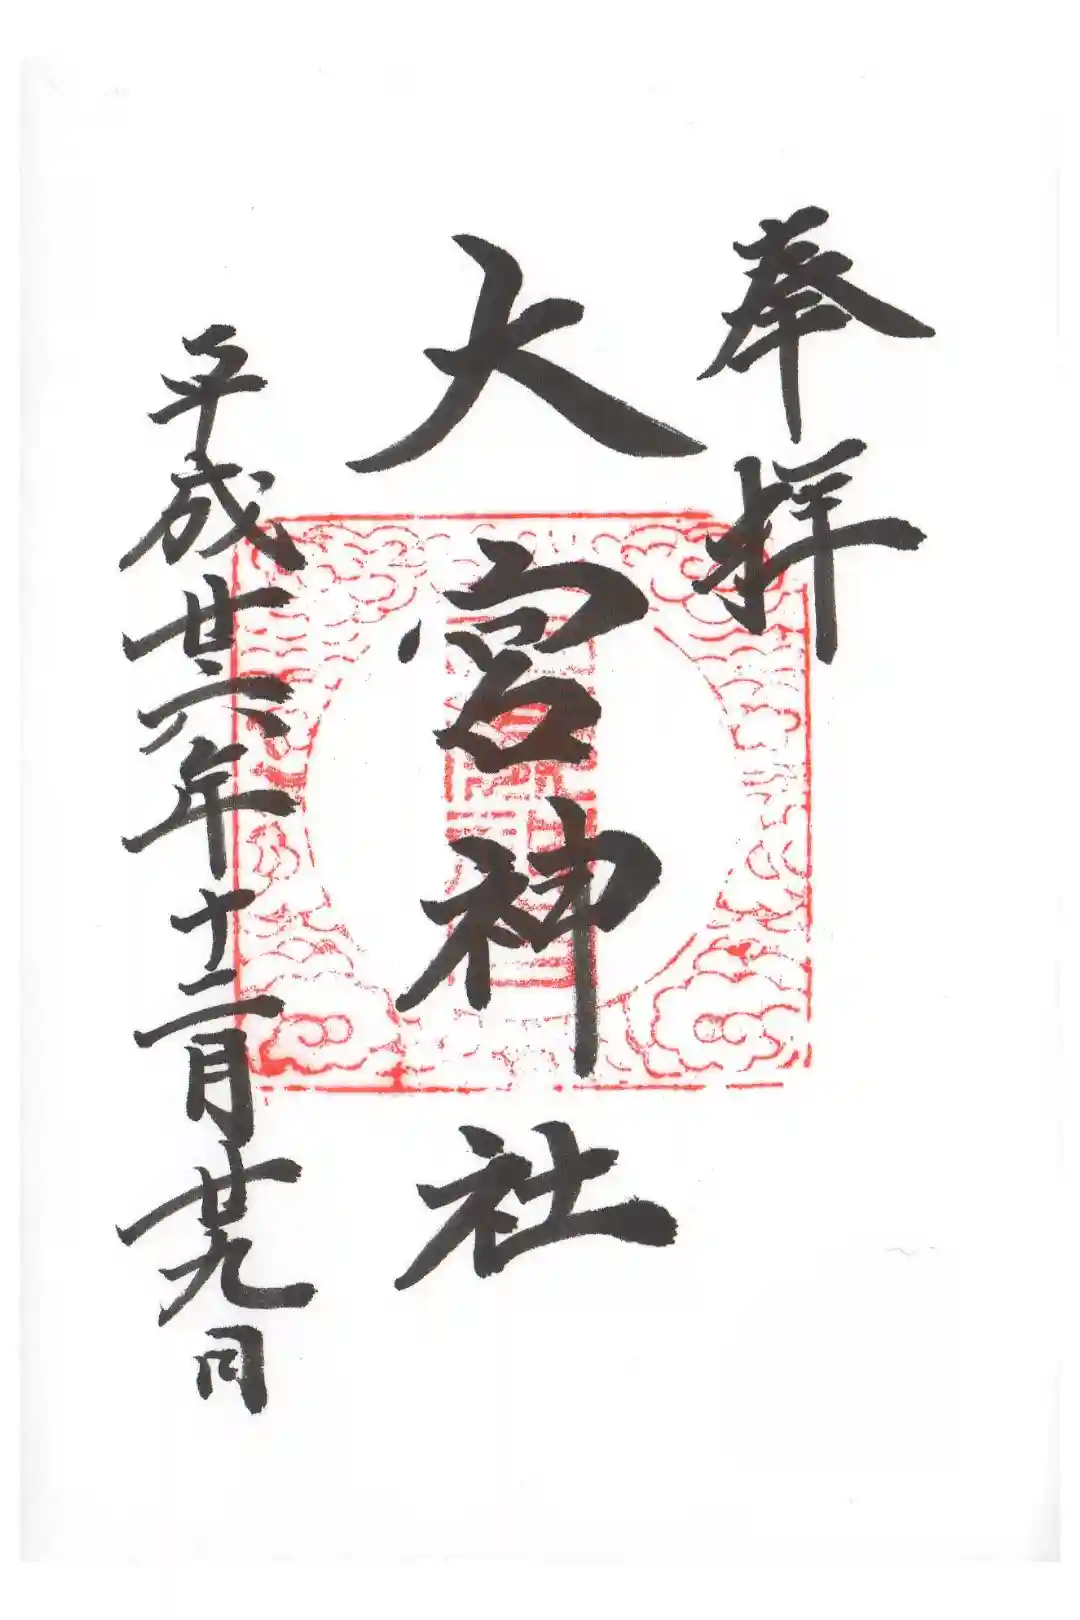 奉拝
大宮神社
平成廿六年十二月廿九日